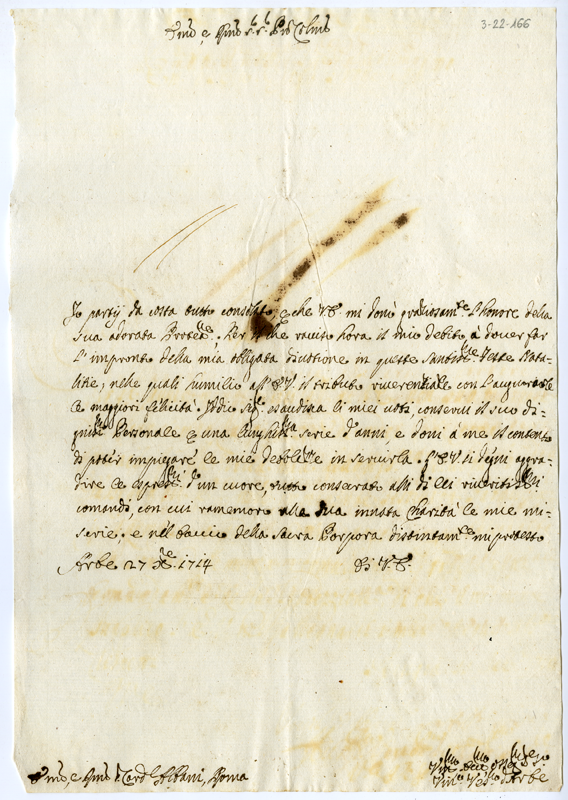 3-22-166
Em.o, e Rmo Sr. Sr. Prõ Colmo
Io party da costa tutto consolato, e che V.E. mi donò graziosam.te l'honore della
sua adorata Protet.ne. Per il che ravviso hora il mio debito à dover far
l'impronto della mia obligata divotione in queste Santis.me Feste Nata-
litie; nelle quali humilio all'E.V. il tributo riverentiale con l'augurarle
le maggiori felicità. Iddio Sig.re esaudisca li miei voti, conservi il suo di-
gnis.mo Personale e una lunghis.ma serie d'anni, e doni à me il contento
di poter impiegare le mie debbolezze in servirla. L'E.V. si degni aggra-
dire le espres.ni d'un cuore, tutto consecrato alli di lei riveritis.mi
comandi, con cui ramemoro alla sua innata Charità le mie mi-
serie; e nel baccio della Sacra Porpora distintam.te mi protesto
Arbe 27 Xbre. 1714 Di V.E.
Em.o, e Rmo Card. Albani, Roma
Arbe